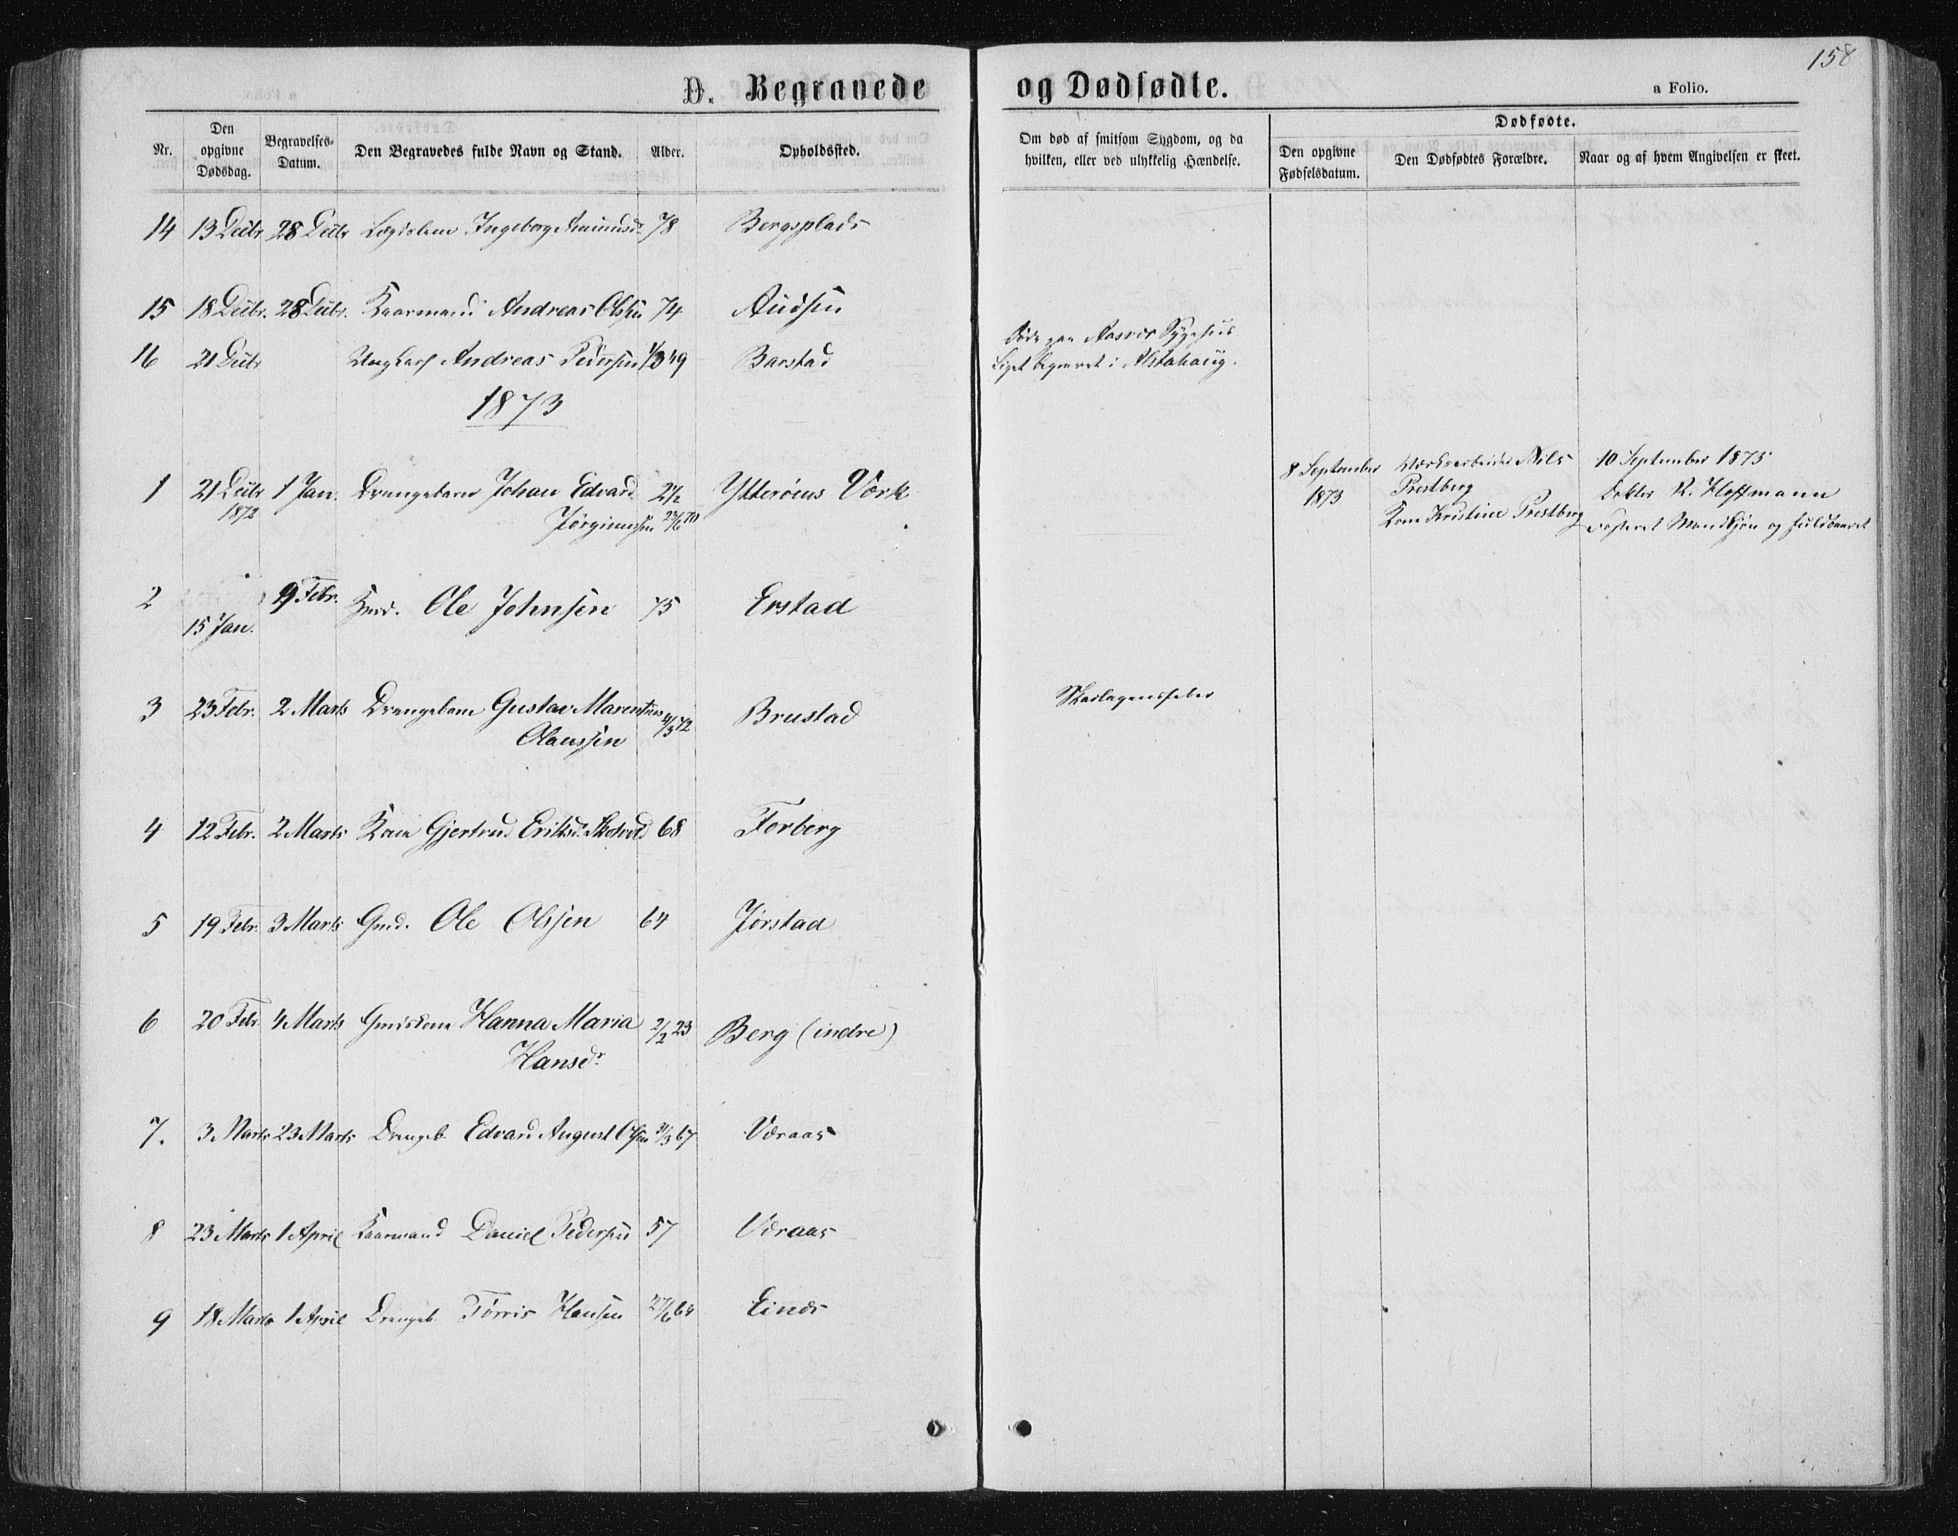 158
D. Begravede og Dødfødte.
a Folio.
Nr. | Den opgivne Dødsdag. | Begravelses-Datum. | Den Begravedes fulde Navn og Stand. | Alder. | Opholdssted. | Om død af smitsom Sygdom, og da hvilken, eller ved ulykkelig Hændelse. | Dødfødte. Den opgivne Fødselsdatum. | Den Dødfødtes Forældre. | Naar og af hvem Angivelsen er skeet.
14 13 Decbr 28 Decbr Lægdslem Ingeborg 78 Bergsplads
15 18 Decbr. 28 Decbr. Kaarmand Andreas Olsen 74 Audsen
16 21 Decbr Ungkarl Andreas Pedersen 49 Barstad
Døde paa Sygehus.
Liget begravet i Alstahaug.
1873
1 21 Decbr 1872 1 Jan. Drengebarn Johan Edvard Jørginussen 70 Ytterøens Værk
8 September 1873
Værksarbeider Nils Prestberg
Kone Kristine Prestberg
10 September 1873
Doktor Hoffmann
Fosteret Mandkjøn og fuldbaaret
2 15 Jan. 9 Febr. Gmd. Ole Johnsen 75 Erstad
3 23 Febr. 2 Marts Drengebarn Gustav Marentius Olaussen 72 Brustad
Skarlagensfeber
4 12 Febr. 2 Marts Kone Gjertrud Eriksd. 68 Forberg
5 19 Febr. 3 Marts Gmd. Ole Olsen 64 Jørstad
6 20 Febr 4 Marts Gmdskone Hanna Maria Hansdr. 2/2 23 Berg (indre)
7. 3 Marts 23 Marts Drengeb. Edvard August Olsen 31/3 67 Væraas
8 23 Marts 1 April Kaarmand Daniel Pedersen 57 Væraas
9 18 Marts 1 April Drengeb. Tørris Hansen 27/6 64 Eines